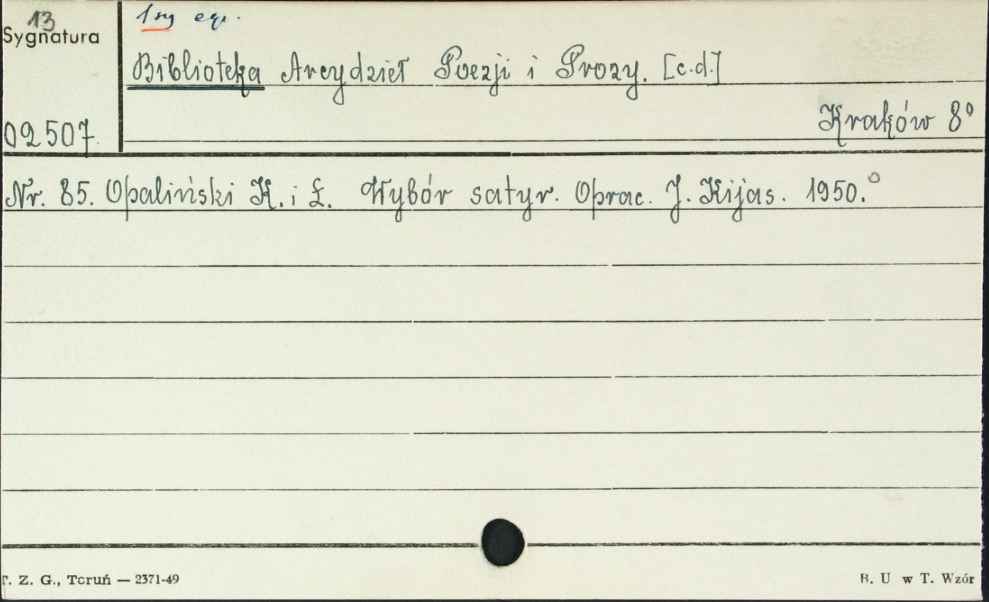 13
Sygnatura
Biblioteka Arcydzieł Poezji i Prozy. [c.d.]
02507.
Kraków 8°
Nr. 85. Opaliński K. i Ł. Wybór satyr. Oprac. J. Kijas. 1950.°
T. Z. G., Toruń — 2371-49
B. U w T. Wzór